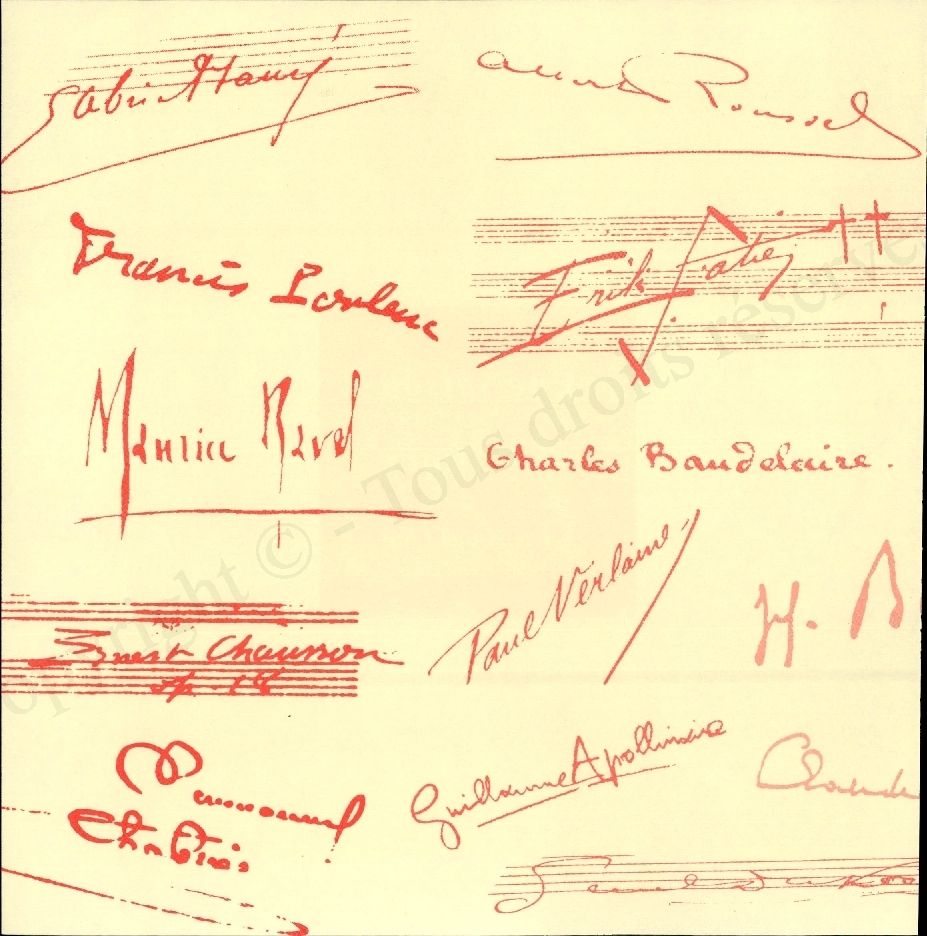 Gabriel Fauré
Albert Roussel
Francis Poulenc
Erik Satie
Maurice Ravel
Charles Baudelaire.
Paul Verlaine
H. B
Ernest Chausson
op. 18
Emmanuel
Chabrier
Guillaume Apollinaire
Claude
Copyright © - Tous droits réservé